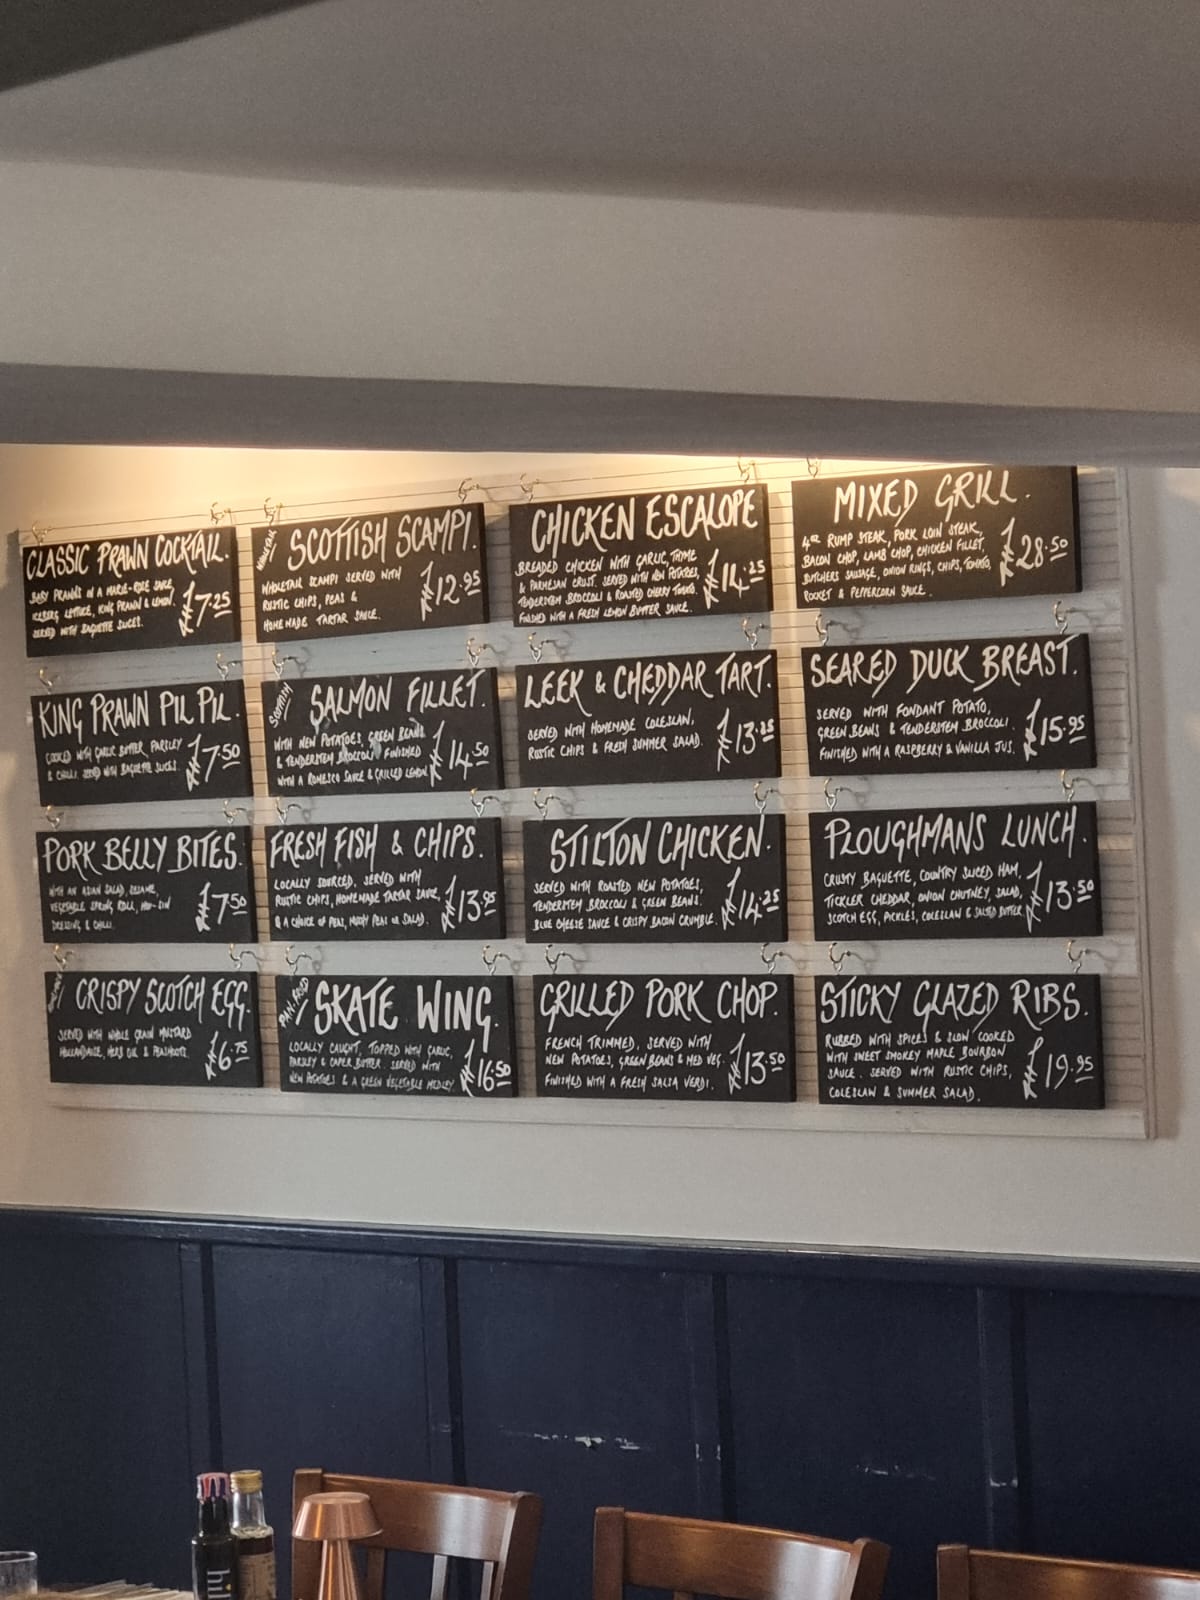 CLASSIC PRAWN COCKTAIL.
BABY PRAWNS IN A MARIE-ROSE SAUCE,
ICEBERG LETTUCE, KING PRAWN & LEMON.
SERVED WITH BAGUETTE SLICES.
£7.25
KING PRAWN PIL PIL.
COOKED WITH GARLIC BUTTER, PARSLEY
& CHILLI. SERVED WITH BAGUETTE SLICES.
£7.50
PORK BELLY BITES.
WITH AN ASIAN SALAD, SESAME,
VEGETABLE SPRING ROLL, HOI-SIN
DRESSING & CHILLI.
£7.50
CRISPY SCOTCH EGG.
SERVED WITH WHOLE GRAIN MUSTARD
HOLLANDAISE, HERB OIL & PEASHOOTS.
£6.75
WHOLETAIL
SCOTTISH SCAMPI.
WHOLETAIL SCAMPI SERVED WITH
RUSTIC CHIPS, PEAS &
HOMEMADE TARTAR SAUCE.
£12.95
SCOTTISH
SALMON FILLET.
WITH NEW POTATOES, GREEN BEANS
& TENDERSTEM BROCCOLI. FINISHED
WITH A ROMESCO SAUCE & GRILLED LEMON
£14.50
FRESH FISH & CHIPS.
LOCALLY SOURCED, SERVED WITH
RUSTIC CHIPS, HOMEMADE TARTAR SAUCE,
& A CHOICE OF PEAS, MUSHY PEAS OR SALAD.
£13.95
PAN-FRIED
SKATE WING.
LOCALLY CAUGHT, TOPPED WITH GARLIC,
PARSLEY & CAPER BUTTER. SERVED WITH
NEW POTATOES & A GREEN VEGETABLE MEDLEY.
£16.50
CHICKEN ESCALOPE
BREADED CHICKEN WITH GARLIC, THYME
& PARMESAN CRUST. SERVED WITH NEW POTATOES,
TENDERSTEM BROCCOLI & ROASTED CHERRY TOMATO.
FINISHED WITH A FRESH LEMON BUTTER SAUCE.
£14.25
LEEK & CHEDDAR TART.
SERVED WITH HOMEMADE COLESLAW,
RUSTIC CHIPS & FRESH SUMMER SALAD.
£13.25
STILTON CHICKEN.
SERVED WITH ROASTED NEW POTATOES,
TENDERSTEM BROCCOLI & GREEN BEANS.
BLUE CHEESE SAUCE & CRISPY BACON CRUMBLE.
£14.25
GRILLED PORK CHOP.
FRENCH TRIMMED, SERVED WITH
NEW POTATOES, GREEN BEANS & MED VEG.
FINISHED WITH A FRESH SALSA VERDI.
£13.50
MIXED GRILL.
4oz RUMP STEAK, PORK LOIN STEAK,
BACON CHOP, LAMB CHOP, CHICKEN FILLET,
BUTCHERS SAUSAGE, ONION RINGS, CHIPS, TOMATO,
ROCKET & PEPPERCORN SAUCE.
£28.50
SEARED DUCK BREAST.
SERVED WITH FONDANT POTATO,
GREEN BEANS & TENDERSTEM BROCCOLI.
FINISHED WITH A RASPBERRY & VANILLA JUS.
£15.95
PLOUGHMANS LUNCH.
CRUSTY BAGUETTE, COUNTRY SLICED HAM,
TICKLER CHEDDAR, ONION CHUTNEY, SALAD,
SCOTCH EGG, PICKLES, COLESLAW & SALTED BUTTER
£13.50
STICKY GLAZED RIBS.
RUBBED WITH SPICES & SLOW COOKED
WITH SWEET SMOKEY MAPLE BOURBON
SAUCE. SERVED WITH RUSTIC CHIPS,
COLESLAW & SUMMER SALAD.
£19.95